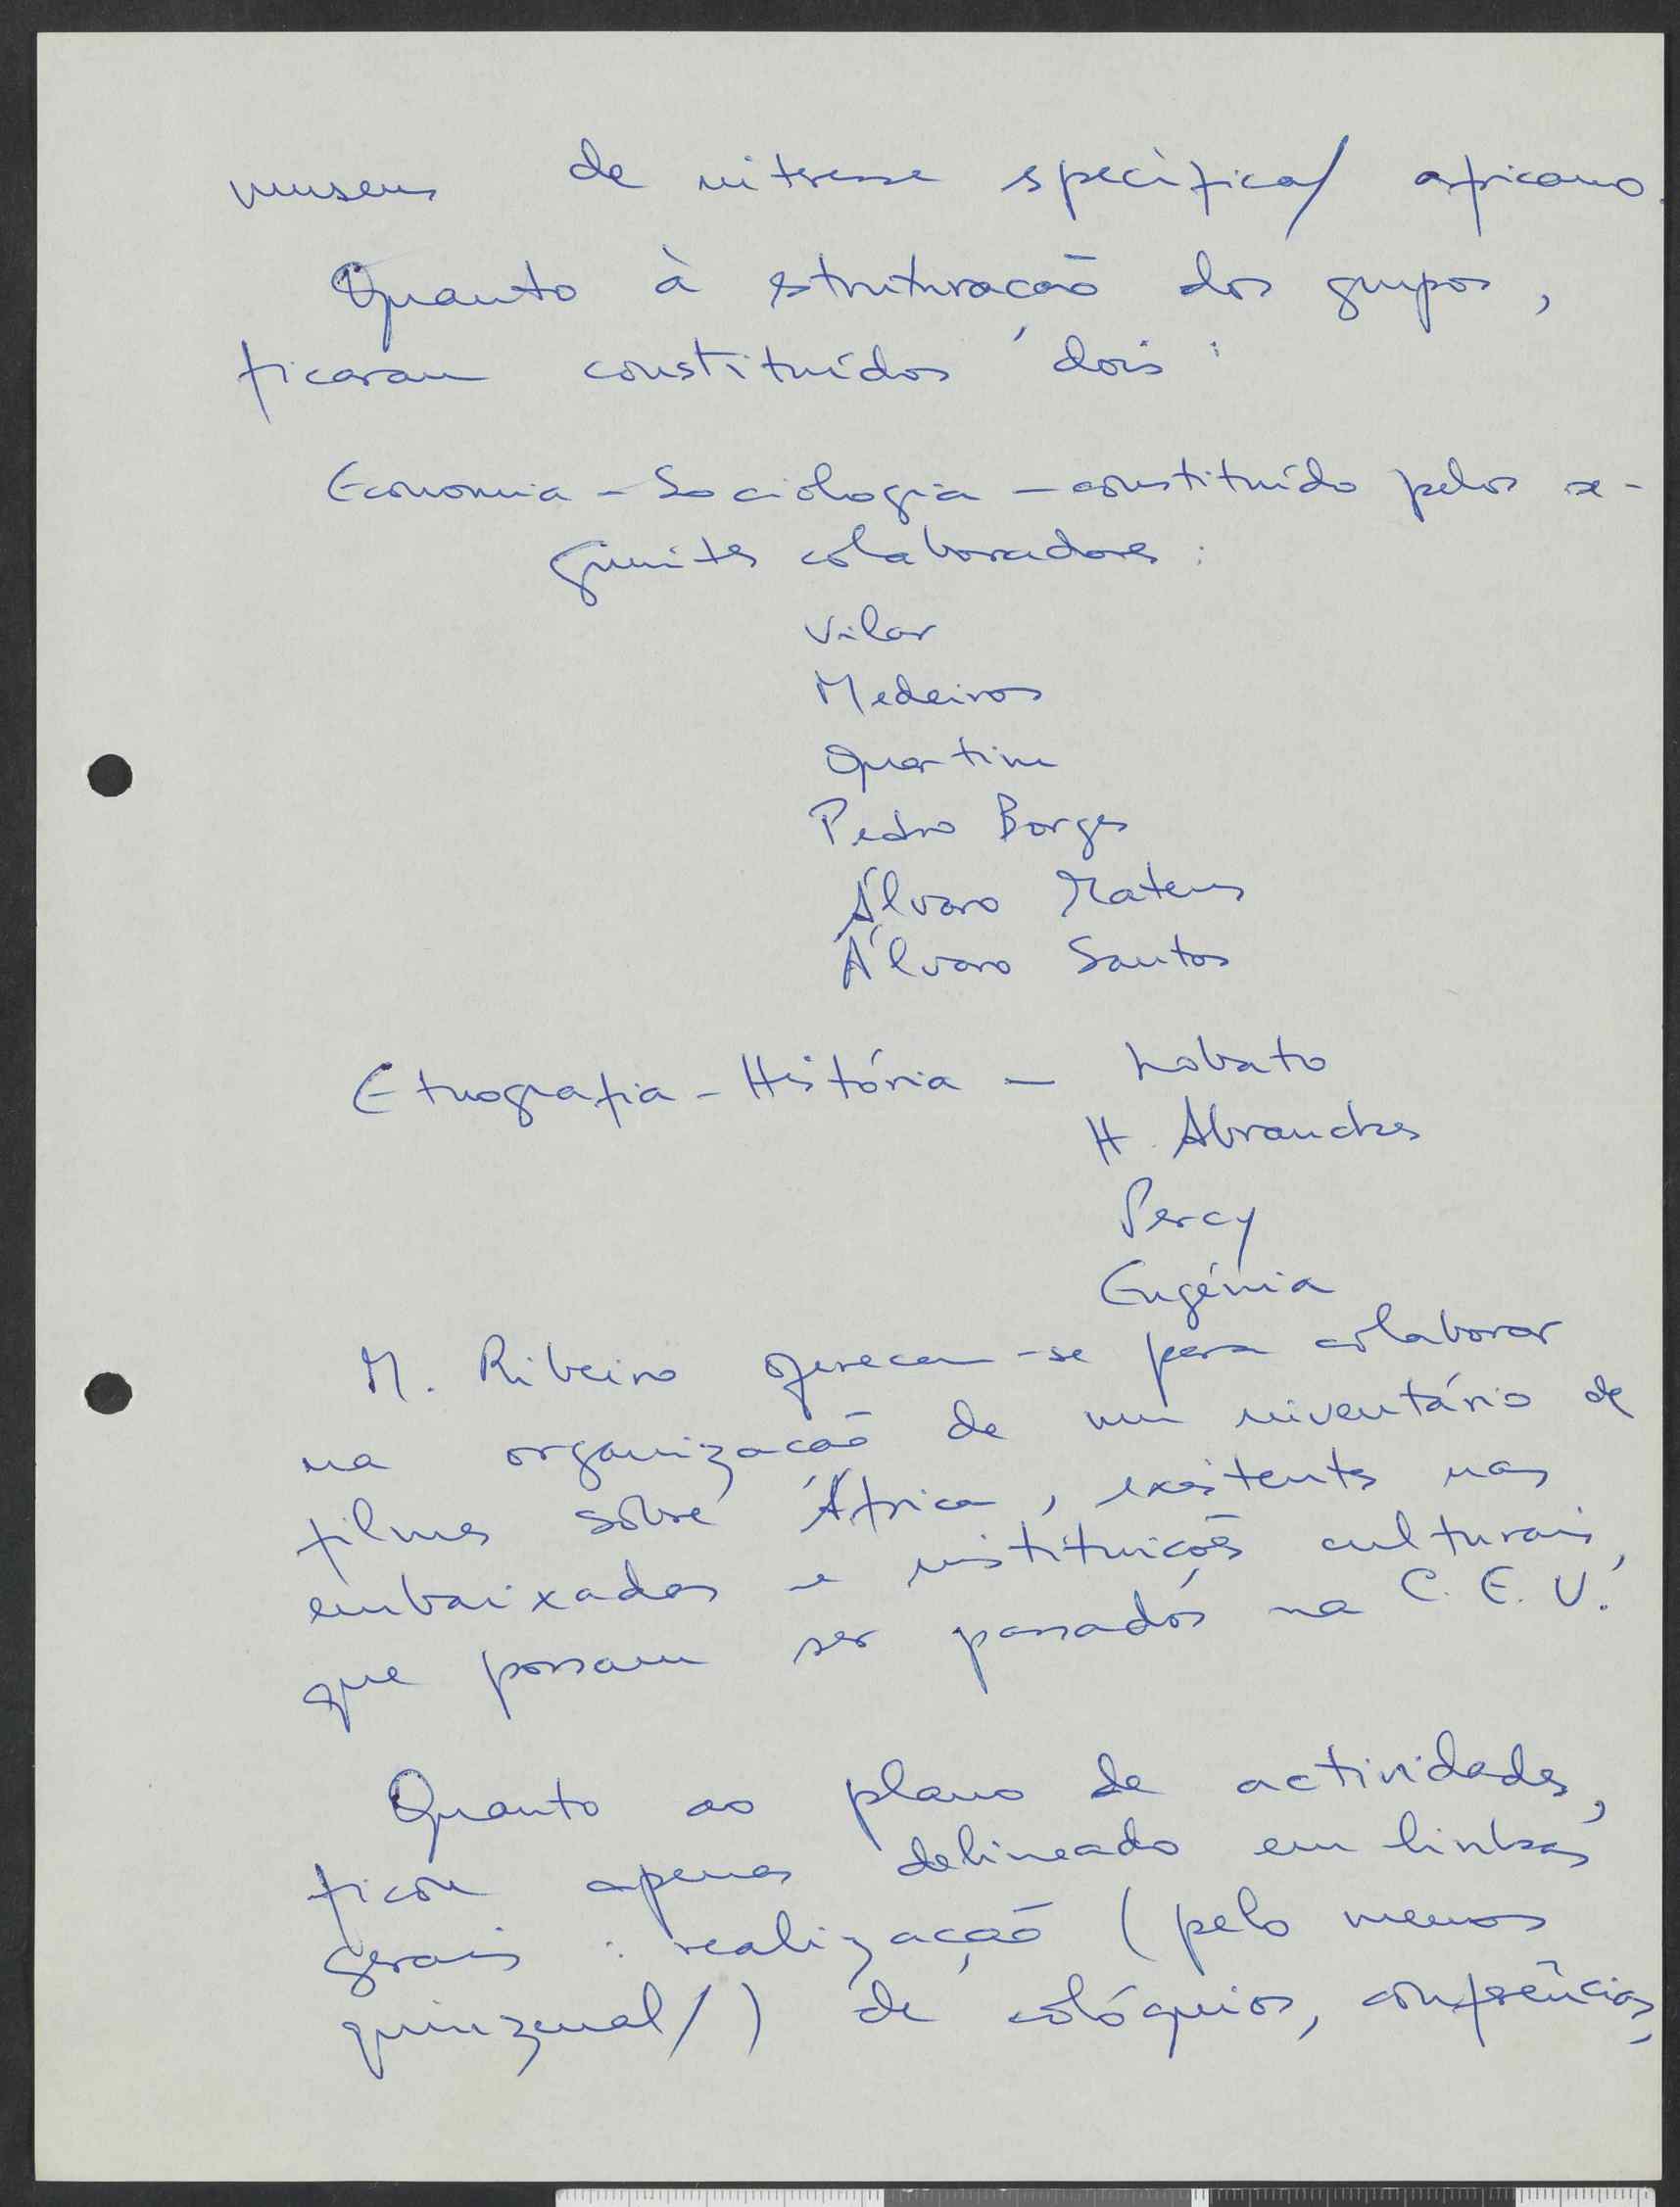 museus de interesse specìfica/ africano.
Quanto à struturação dos grupos,
ficaram constituídos dois:
Economia - Sociologia - constituído pelos se-
guintes colaboradores:
Vilar
Medeiros
Quartim
Pedro Borges
Álvaro Mateus
Álvaro Santos
Etnografia - História - Lobato
H. Abranches
Percy
Eugénia
M. Ribeiro ofereceu-se para colaborar
na organização de um inventário de
filmes sôbre África, existentes nas
embaixadas e instituições culturais,
que possam ser passados na C.E.U.
Quanto ao plano de actividades,
ficou apenas delineado em linhas
gerais: realização (pelo menos
quinzenal/) de colóquios, conferências,